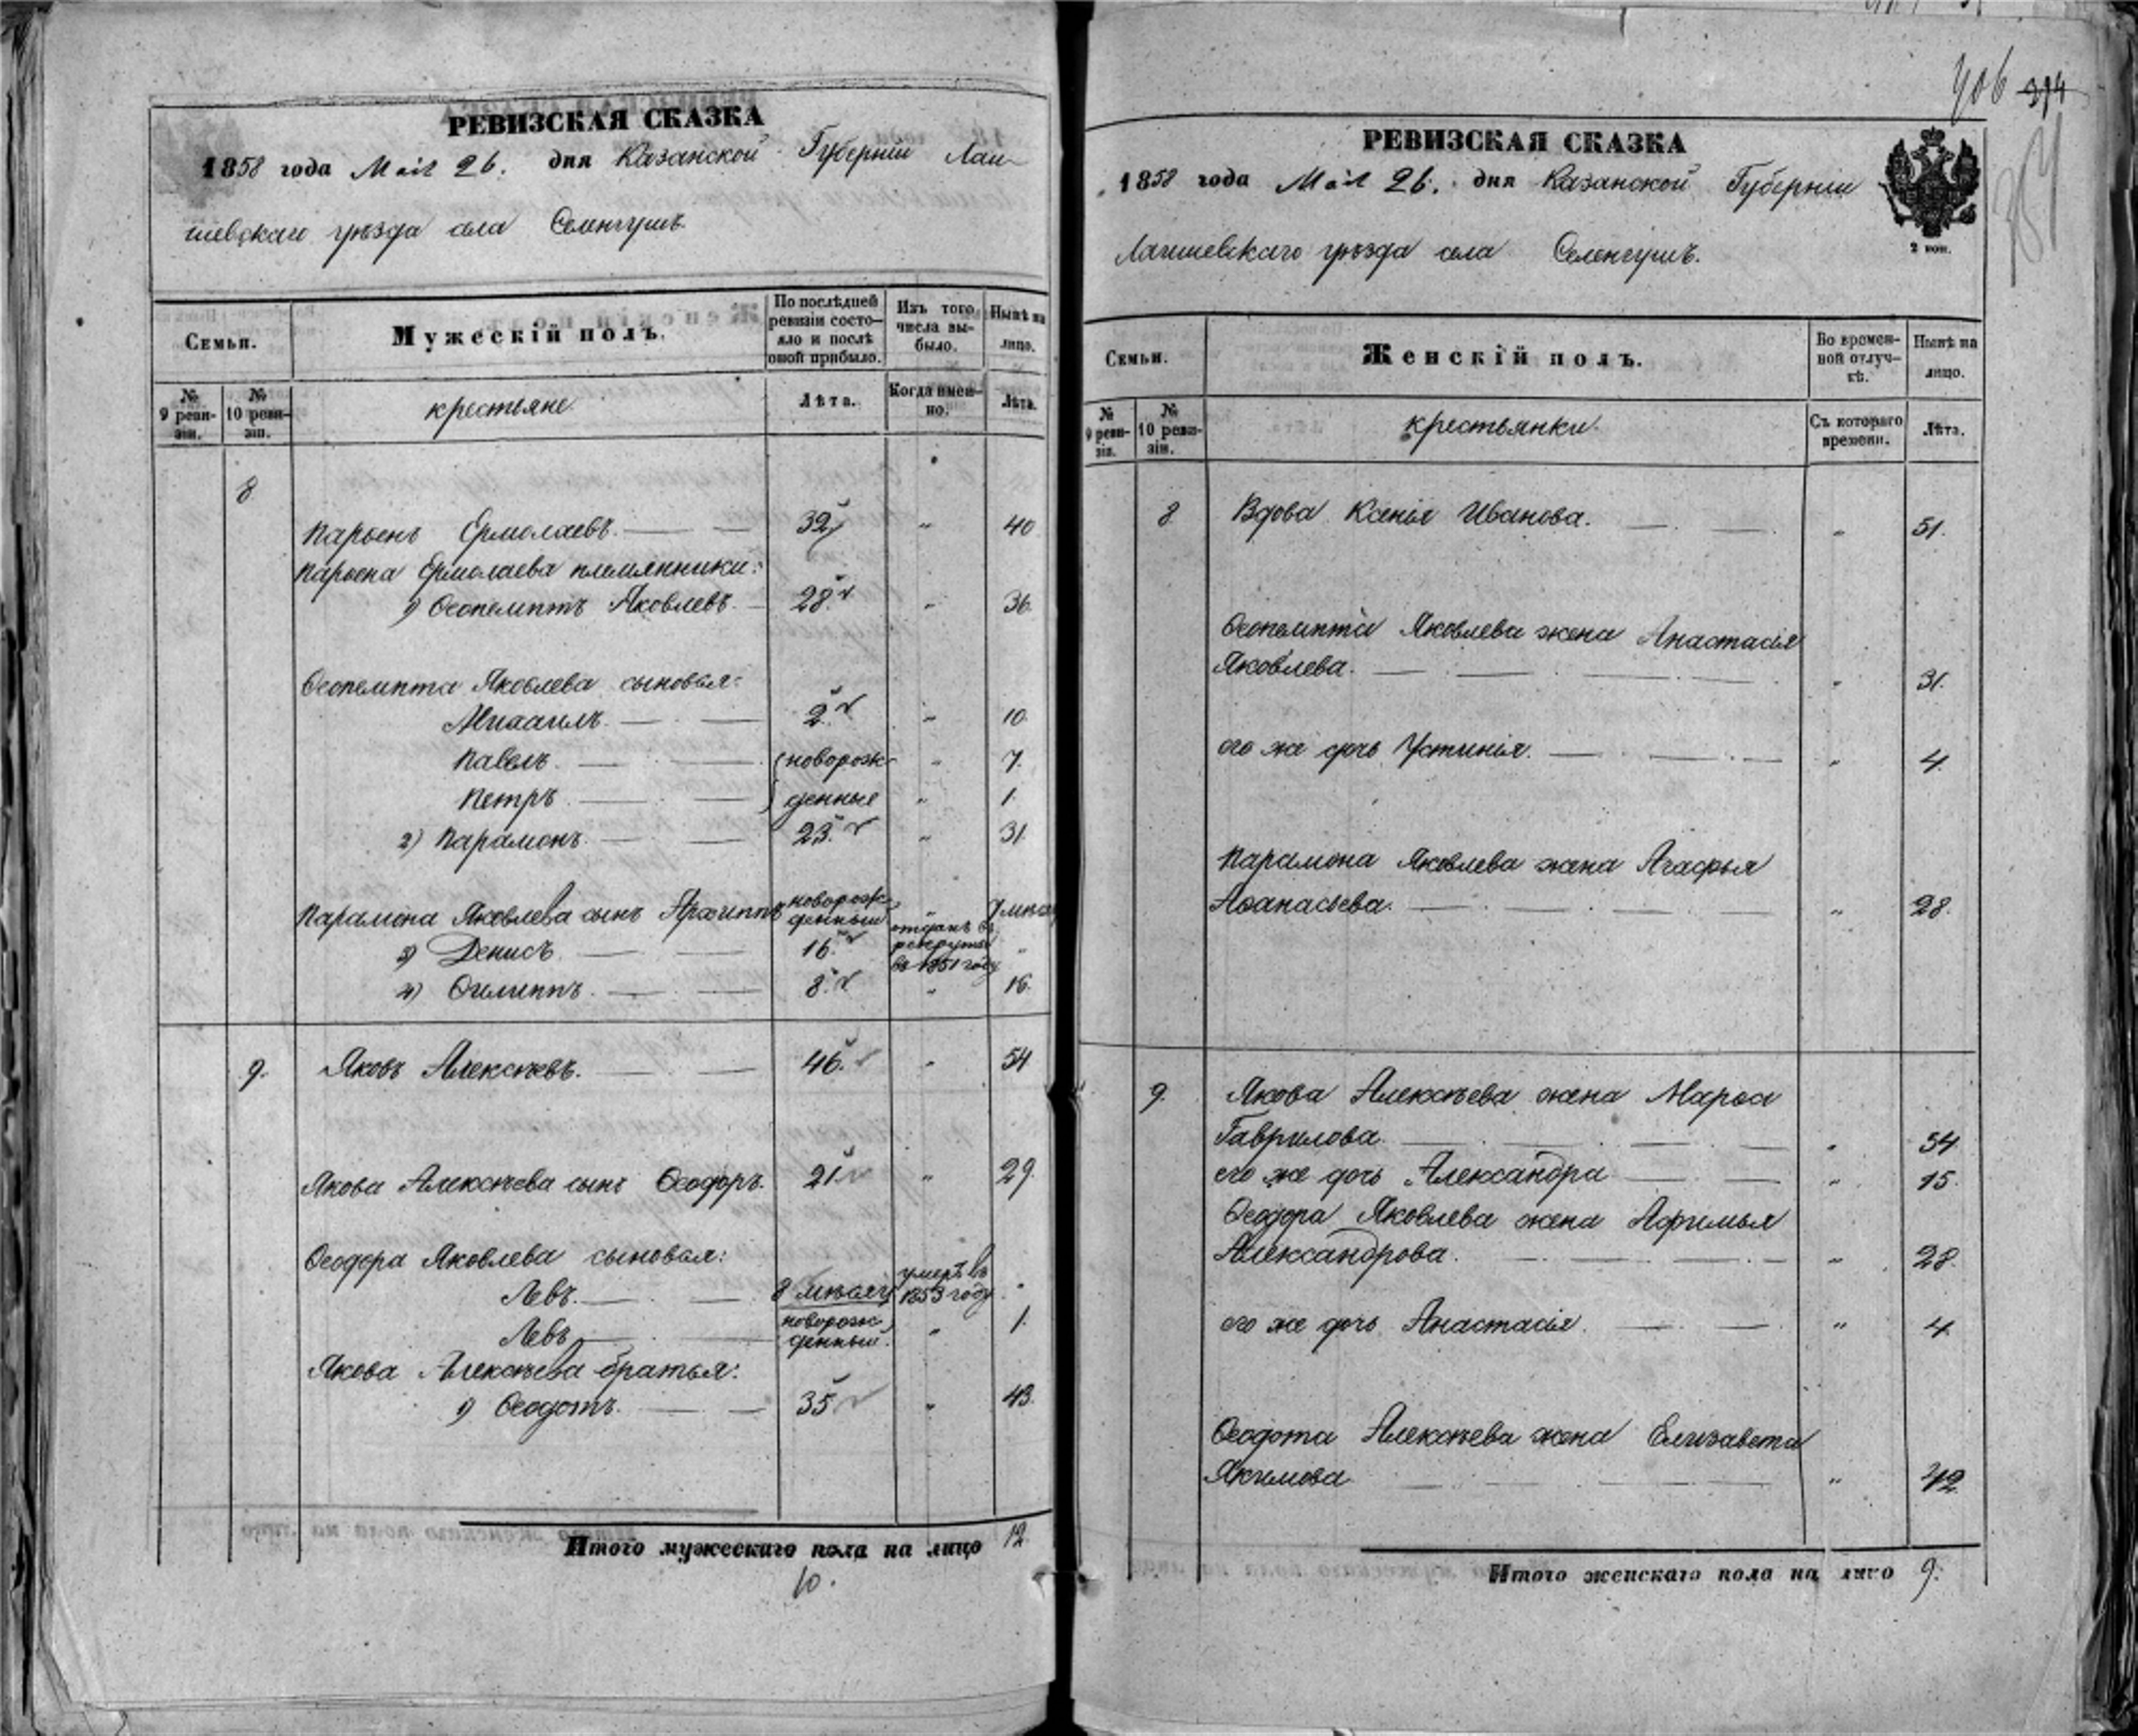 РЕВИЗСКАЯ СКАЗКА
1858 года Маія 26. дня Казанской Губерніи Лаи-
шевскаго уѣзда села Селенгушъ.
Семьи. Мужескій полъ. По послѣдней ревизіи состояло и послѣ оной прибыло. Изъ того числа выбыло. Нынѣ на лицо.
№ 9 реви-зіи. № 10 реви-зіи. крестьяне Лѣта. Когда имен-но. Лѣта.
8
Парѳенъ Ермолаевъ. 32 " 40
Парѳена Ермолаева племянники:
1) Ѳеопемптъ Яковлевъ. 28. " 36.
Ѳеопемпта Яковлева сыновья:
Михаилъ. 2. " 10.
Павелъ. новорож- " 7.
Петръ денные " 1.
2) Парамонъ. 23. " 31.
Парамона Яковлева сынъ Архиппъ новорож-денный "
3) Денисъ. 16. отданъ въ рекруты въ 1851 году "
4) Филиппъ. 8. " 16.
9. Яковъ Алексѣевъ. 46. " 54
Якова Алексѣева сынъ Ѳеодоръ. 21. " 29.
Ѳеодора Яковлева сыновья:
Левъ. 8 умеръ въ 1853 году "
Левъ новорож-денный. " 1.
Якова Алексѣева братья:
1) Ѳеодотъ. 35 " 43.
Итого мужескаго пола на лицо 12.
10.
406 394
РЕВИЗСКАЯ СКАЗКА
1858 года Маія 26. дня Казанской Губерніи
2 коп.
Лаишевскаго уѣзда села Селенгушъ.
Семьи. Женскій полъ. Во времен-ной отлуч-кѣ. Нынѣ на лицо.
№ 9 реви-зіи. № 10 реви-зіи. крестьянки. Съ котораго времени. Лѣта.
8 Вдова Ксенія Иванова. " 51.
Ѳеопемпта Яковлева жена Анастасія
Яковлева. " 31.
его же дочь Устинія. " 4.
Парамона Яковлева жена Агафья
Аѳанасьева. " 28.
9. Якова Алексѣева жена Марѳа
Гаврилова. " 54.
его же дочь Александра " 15.
Ѳеодора Яковлева жена Афимья
Александрова. " 28.
его же дочь Анастасія. " 4.
Ѳеодота Алексѣева жена Елизавета
Якимова " 42.
Итого женскаго пола на лицо 9.